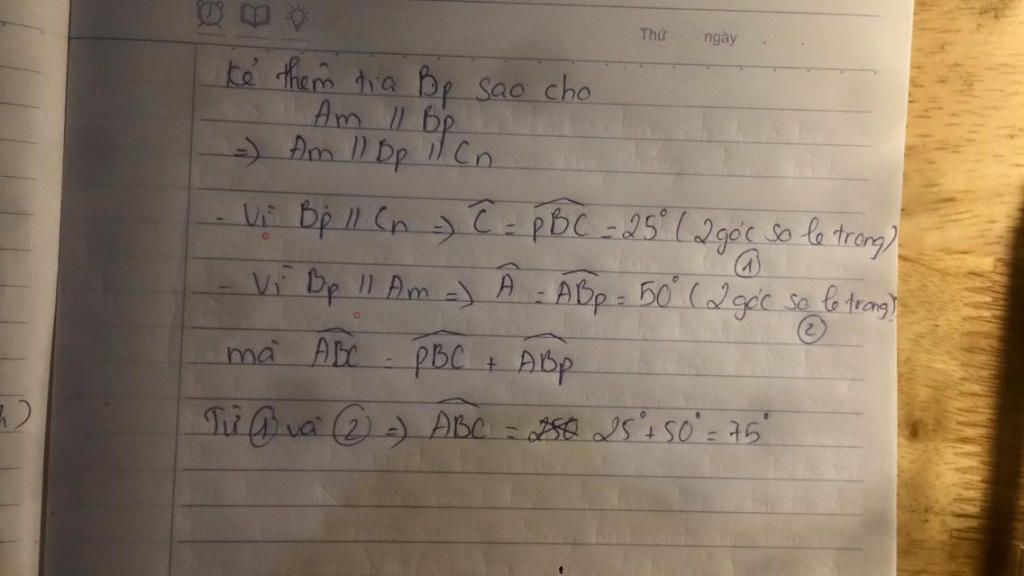 Thứ ngày
Kẻ thêm tia Bp sao cho
Am // Bp
=> Am // Bp // Cn
- Vì Bp // Cn => Ĉ = p̂BC = 25° (2 góc so le trong)
①
- Vì Bp // Am => Â = ÂBp = 50° (2 góc so le trong)
②
mà ÂBC = p̂BC + ÂBp
Từ ① và ② => ÂBC = 25° + 50° = 75°